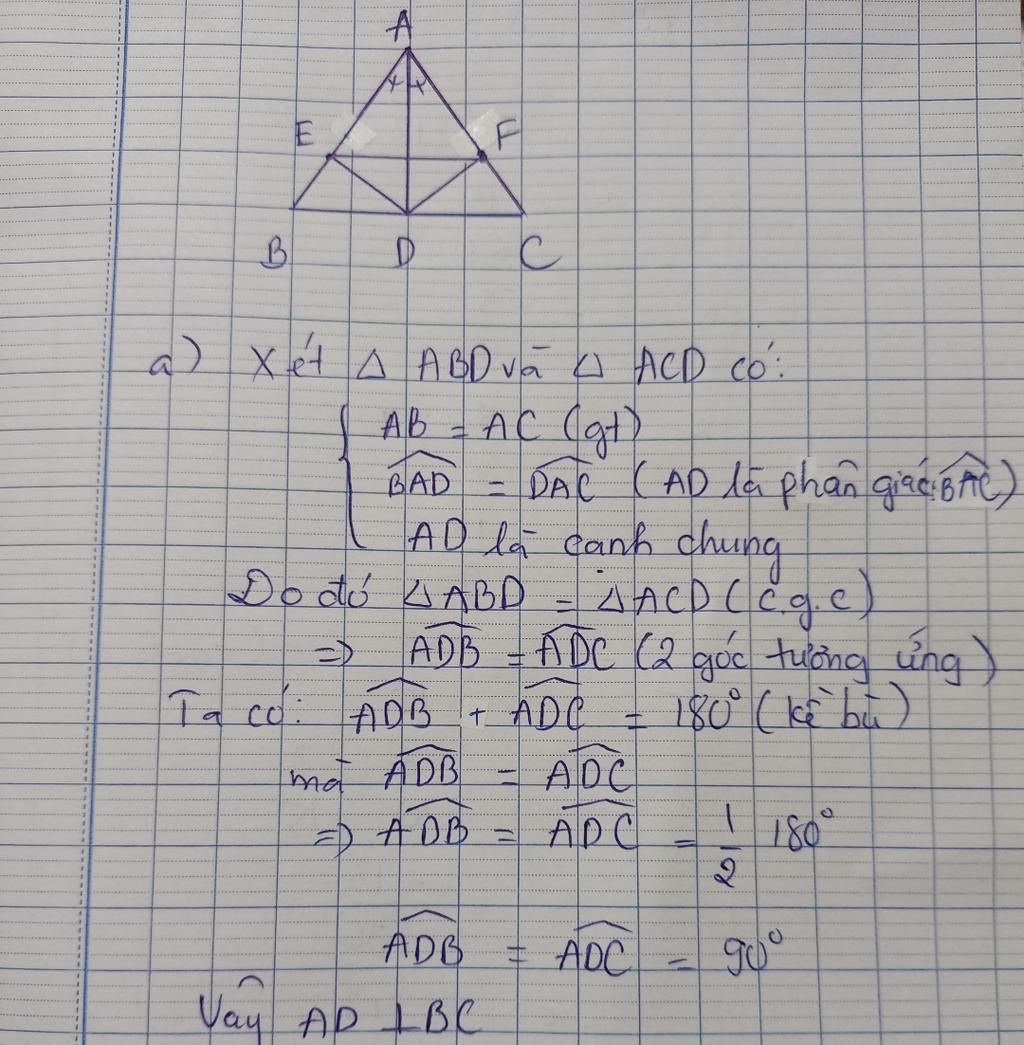 A
E F
B D C
a) Xét △ ABD và △ ACD có:
AB = AC (gt)
\widehat{BAD} = \widehat{DAC} (AD là phân giác \widehat{BAC})
AD là cạnh chung
Do đó △ABD = △ACD (c.g.c)
=> \widehat{ADB} = \widehat{ADC} (2 góc tương ứng)
Ta có: \widehat{ADB} + \widehat{ADC} = 180° (kề bù)
mà \widehat{ADB} = \widehat{ADC}
=> \widehat{ADB} = \widehat{ADC} = \frac{1}{2} 180°
\widehat{ADB} = \widehat{ADC} = 90°
Vậy AD ⊥ BC